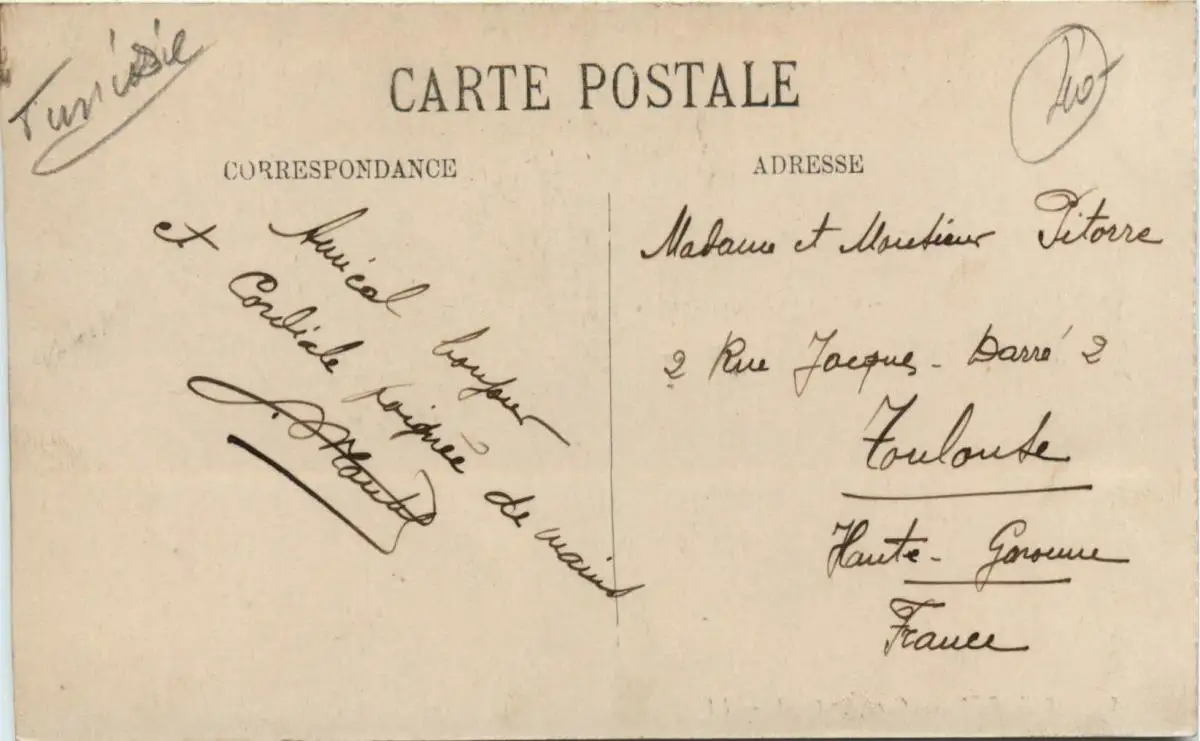 Tunisie
CARTE POSTALE
CORRESPONDANCE
ADRESSE
Amical bonjour
et Cordiale poignée de mains
Madame et Monsieur Pitorre
2 Rue Jacques - Darré 2
Toulouse
Haute - Garonne
France